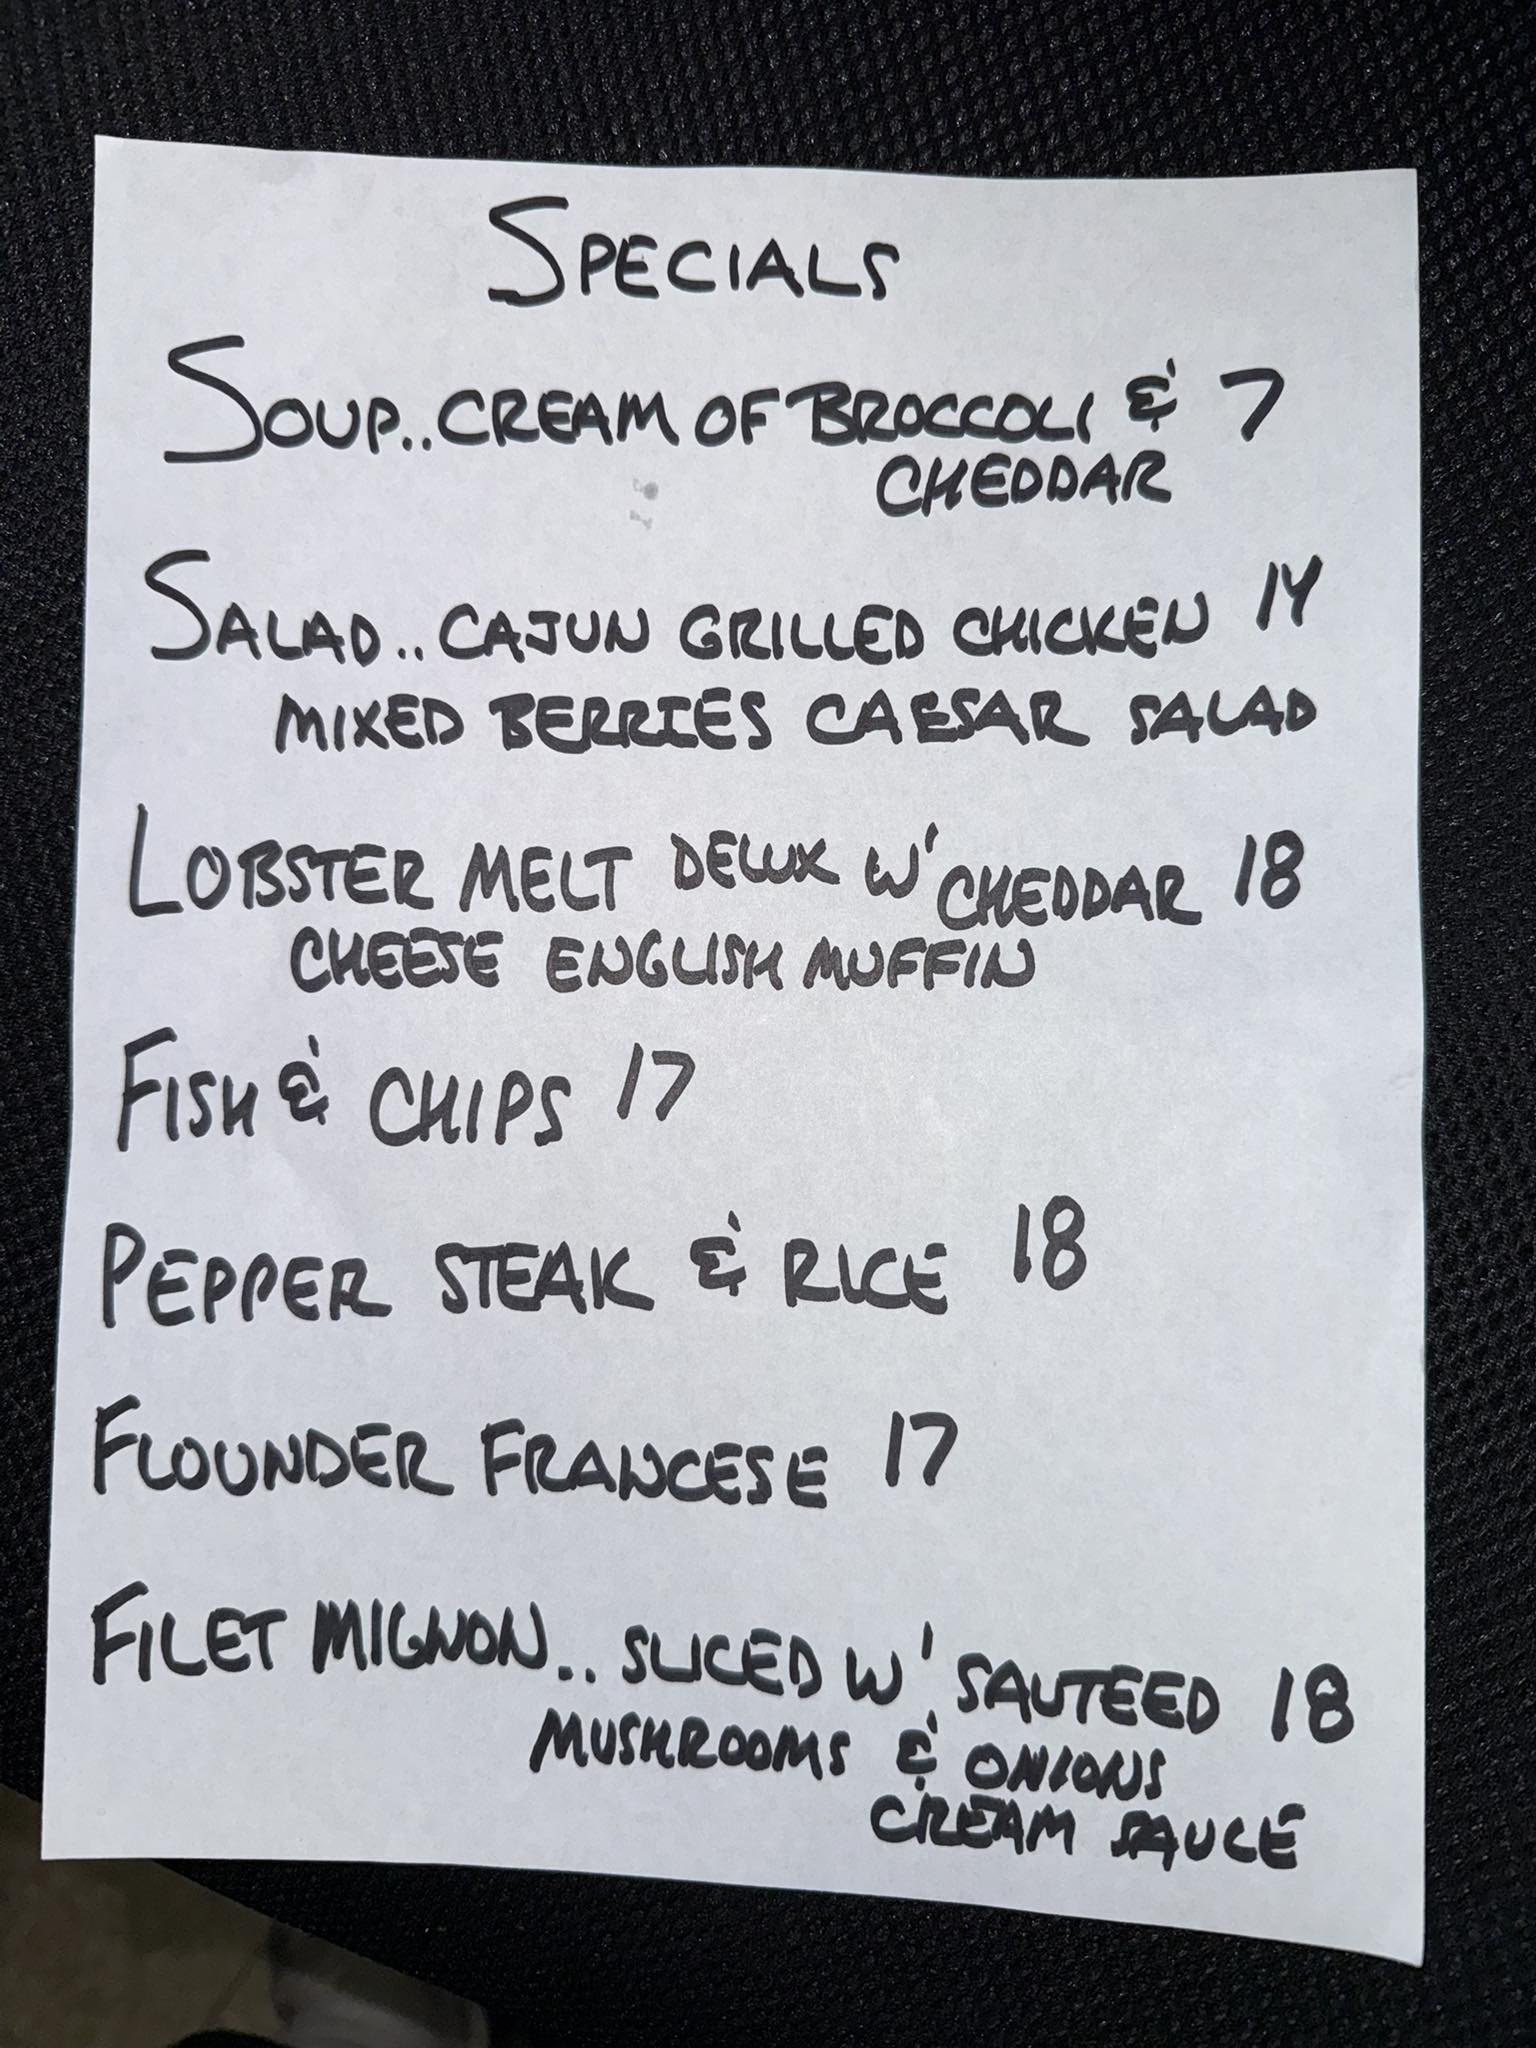 SPECIALS
SOUP..CREAM OF BROCCOLI & 7
CHEDDAR
SALAD..CAJUN GRILLED CHICKEN 14
MIXED BERRIES CAESAR SALAD
LOBSTER MELT DELUX W' CHEDDAR 18
CHEESE ENGLISH MUFFIN
FISH & CHIPS 17
PEPPER STEAK & RICE 18
FLOUNDER FRANCESE 17
FILET MIGNON..SLICED W' SAUTEED 18
MUSHROOMS & ONIONS
CREAM SAUCE